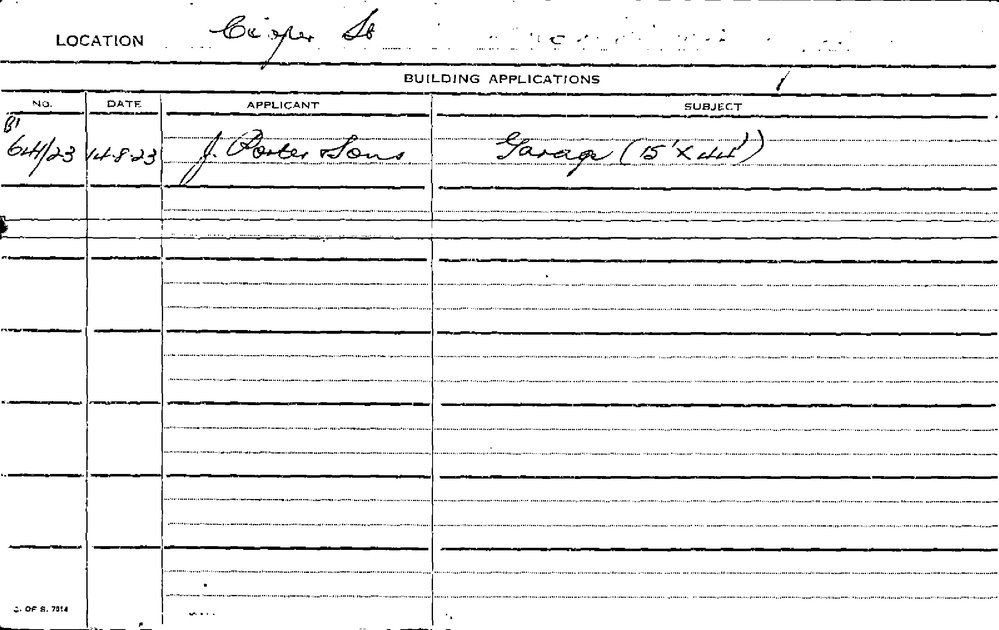 LOCATION Cooper St
BUILDING APPLICATIONS
NO. DATE APPLICANT SUBJECT
B1
641/23 14.8.23 J. Porter & Sons Garage (15' x 44')
C. OF S. 7014